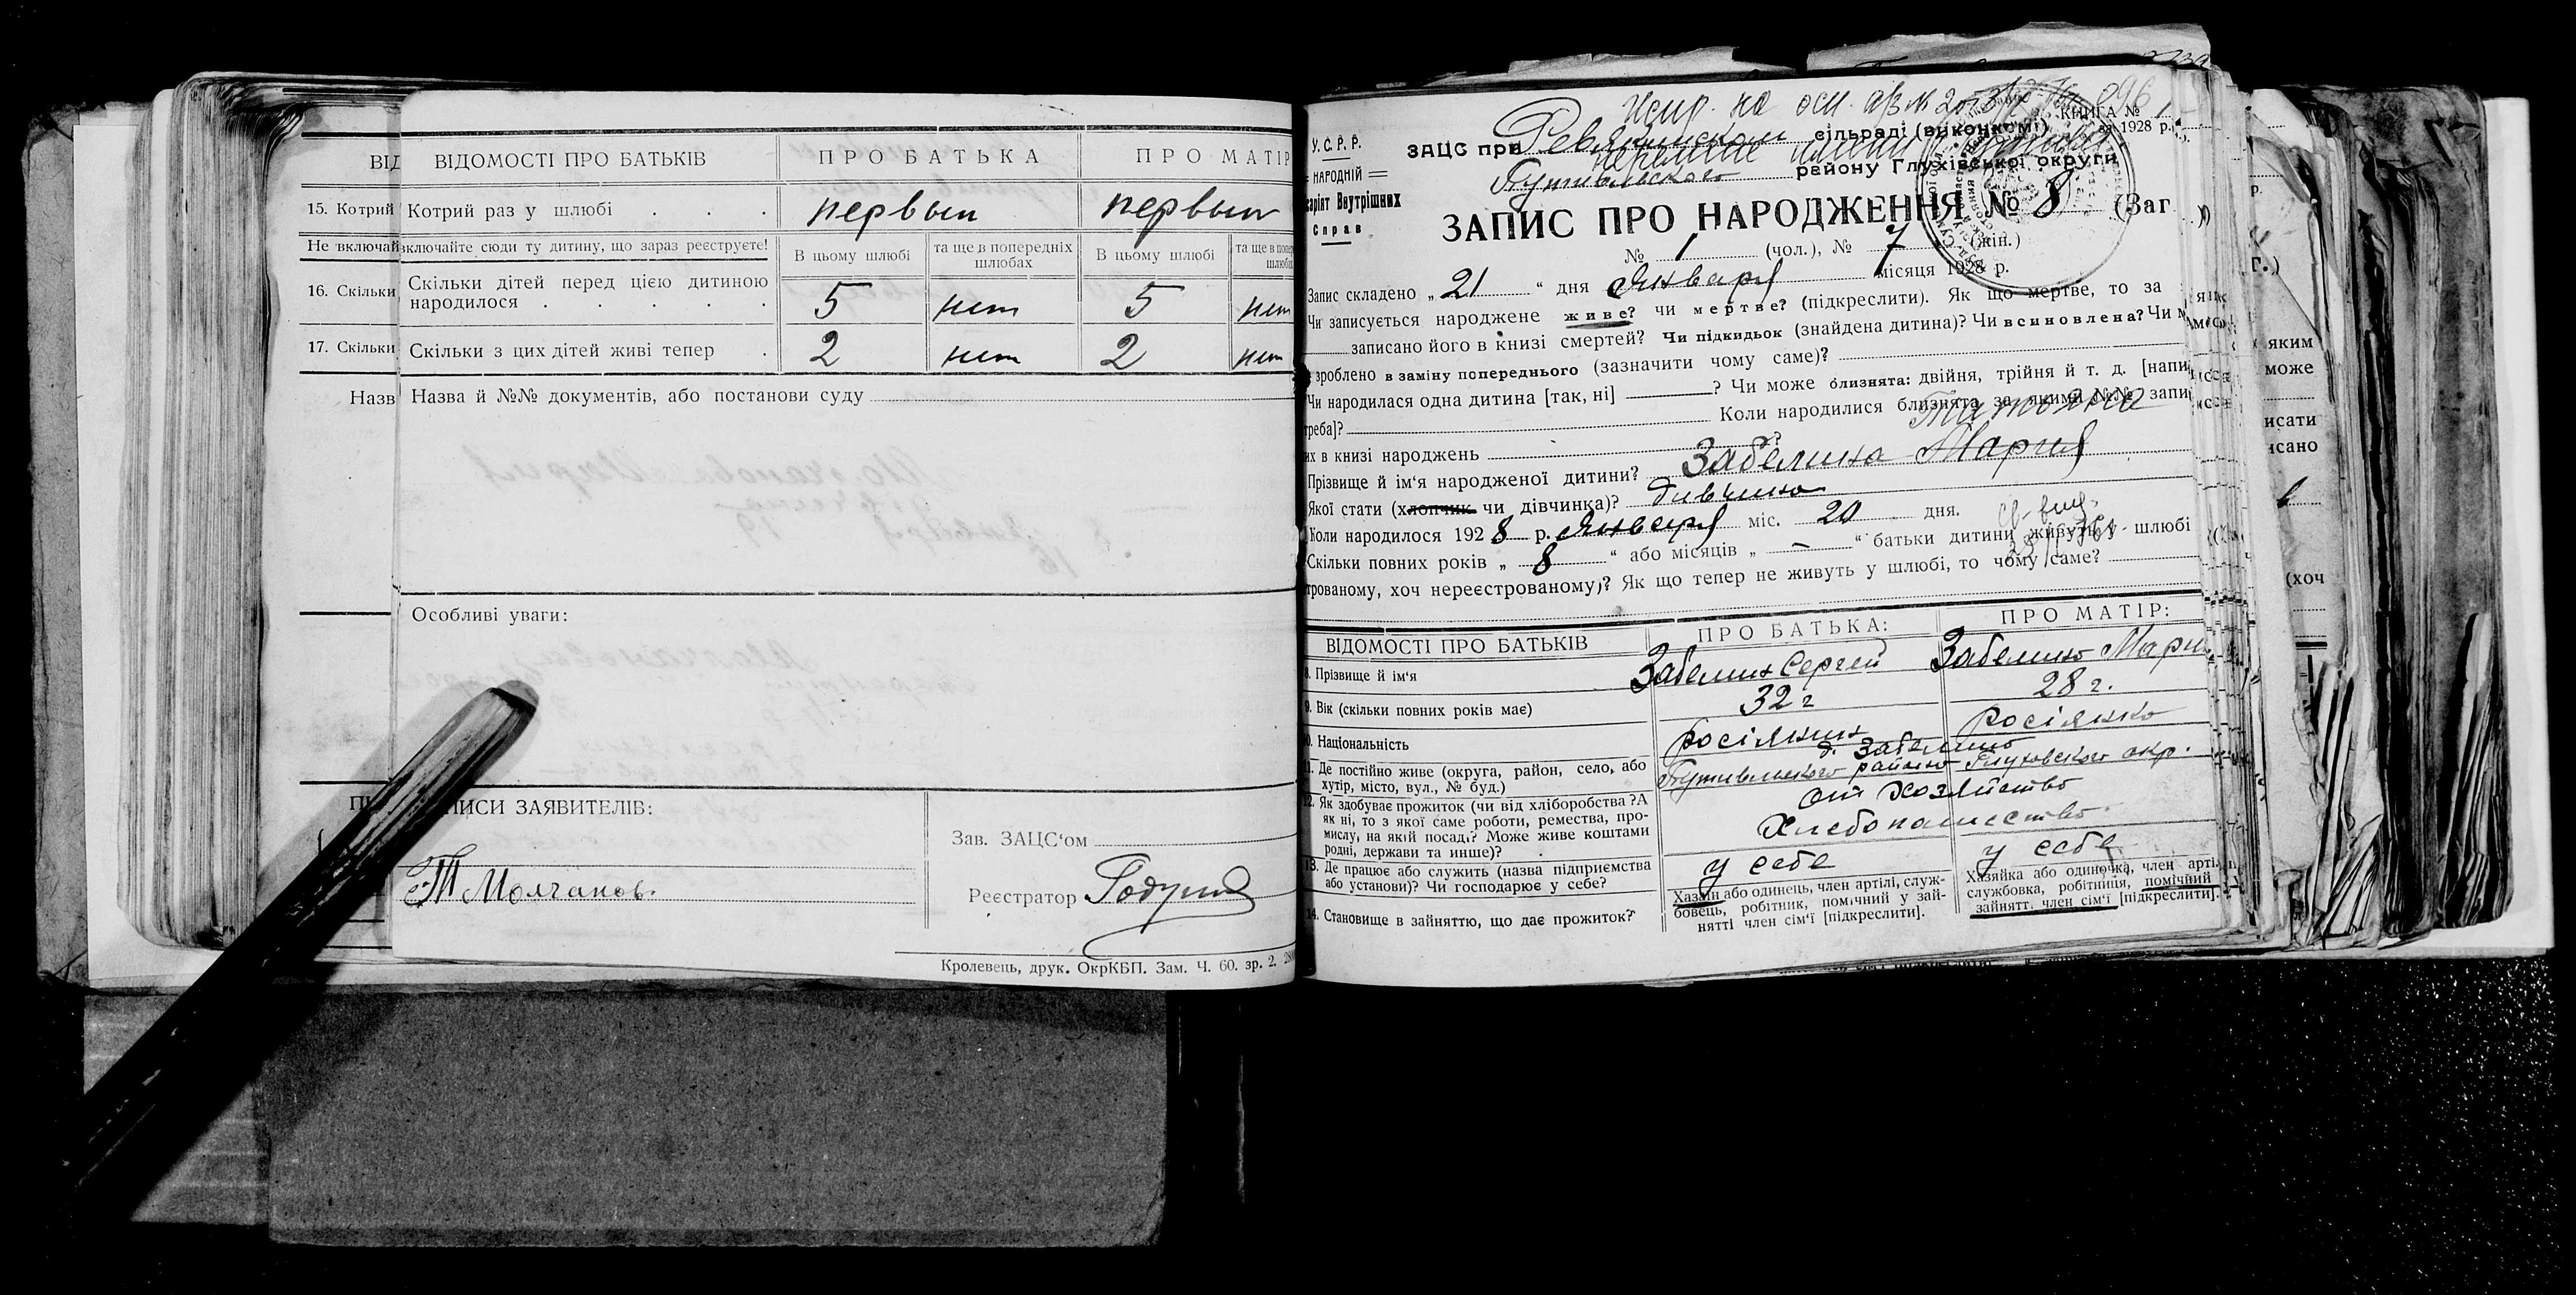 ВІДОМОСТІ ПРО БАТЬКІВ ПРО БАТЬКА ПРО МАТІР
15. Котрий Котрий раз у шлюбі . . . первый первый
Не включай ключайте сюди ту дитину, що зараз реєструєте! В цьому шлюбі та ще в попередніх шлюбах В цьому шлюбі
16. Скільки Скільки дітей перед цією дитиною народилося . . . . . 5 нет 5 нет
17. Скільки Скільки з цих дітей живі тепер . 2 нет 2 нет
Назв Назва й №№ документів, або постанови суду
Особливі уваги:
ПИСИ ЗАЯВИТЕЛІВ:
Зав. ЗАЦС‘ом
Молчанов.
Реєстратор
Кролевець, друк. ОкрКБП. Зам. Ч. 60. зр. 2.
Испр. на осн.
КНИГА №
У.С.Р.Р. ЗАЦС при сільраді (виконкомі) 1928 р.
НАРОДНІЙ Путивльского району Глухівської округи
Внутрішних
Справ
ЗАПИС ПРО НАРОДЖЕННЯ № 8 (Заг
№ 1 (чол.), № 7 (жін.)
Запис складено „ 21 “ дня Января місяця 1928 р.
Чи записується народжене живе? чи мертве? (підкреслити). Як що мертве, то за
записано його в книзі смертей? Чи підкидьок (знайдена дитина)? Чи всиновлена? Чи
зроблено в заміну попереднього (зазначити чому саме)?
Чи народилася одна дитина [так, ні] ? Чи може близнята: двійня, трійня й т. д. [напи
треба]? Коли народилися близнята, за якими №№ запи
их в книзі народжень ?
Татьяна
Прізвище й ім‘я народженої дитини? Забелина Мария
Якої стати (хлопчик чи дівчинка)? дивчина
Коли народилося 192 8 р. Января міс. 20 дня.
Скільки повних років „ 8 “ або місяців „ — “ батьки дитини живуть у шлюбі
трованому, хоч нереєстрованому)? Як що тепер не живуть у шлюбі, то чому саме?
ВІДОМОСТІ ПРО БАТЬКІВ ПРО БАТЬКА: ПРО МАТІР:
8. Прізвище й ім‘я Забелин Сергей Забелина Мари
9. Вік (скільки повних років має) 32 г 28 г.
10. Національність росіянин росіянка
д. Забелино
11. Де постійно живе (округа, район, село, або хутір, місто, вул., № буд.) Путивльского района Глуховского окр.
12. Як здобуває прожиток (чи від хліборобства? А як ні, то з якої саме роботи, ремества, промислу, на якій посаді? Може живе коштами родні, держави та инше)? от хозяйство
Хлебопашество
13. Де працює або служить (назва підприємства або установи)? Чи господарює у себе? у себе у себе
14. Становище в зайняттю, що дає прожиток?
Хазяїн або одинець, член артілі, служ-
бовець, робітник, помічний у зай-
нятті член сім‘ї [підкреслити].
Хазяйка або одиночка, член арті.
службовка, робітниця, помічний
зайнятт. член сім‘ї [підкреслити].
яким
може
исати
исано
(хоч